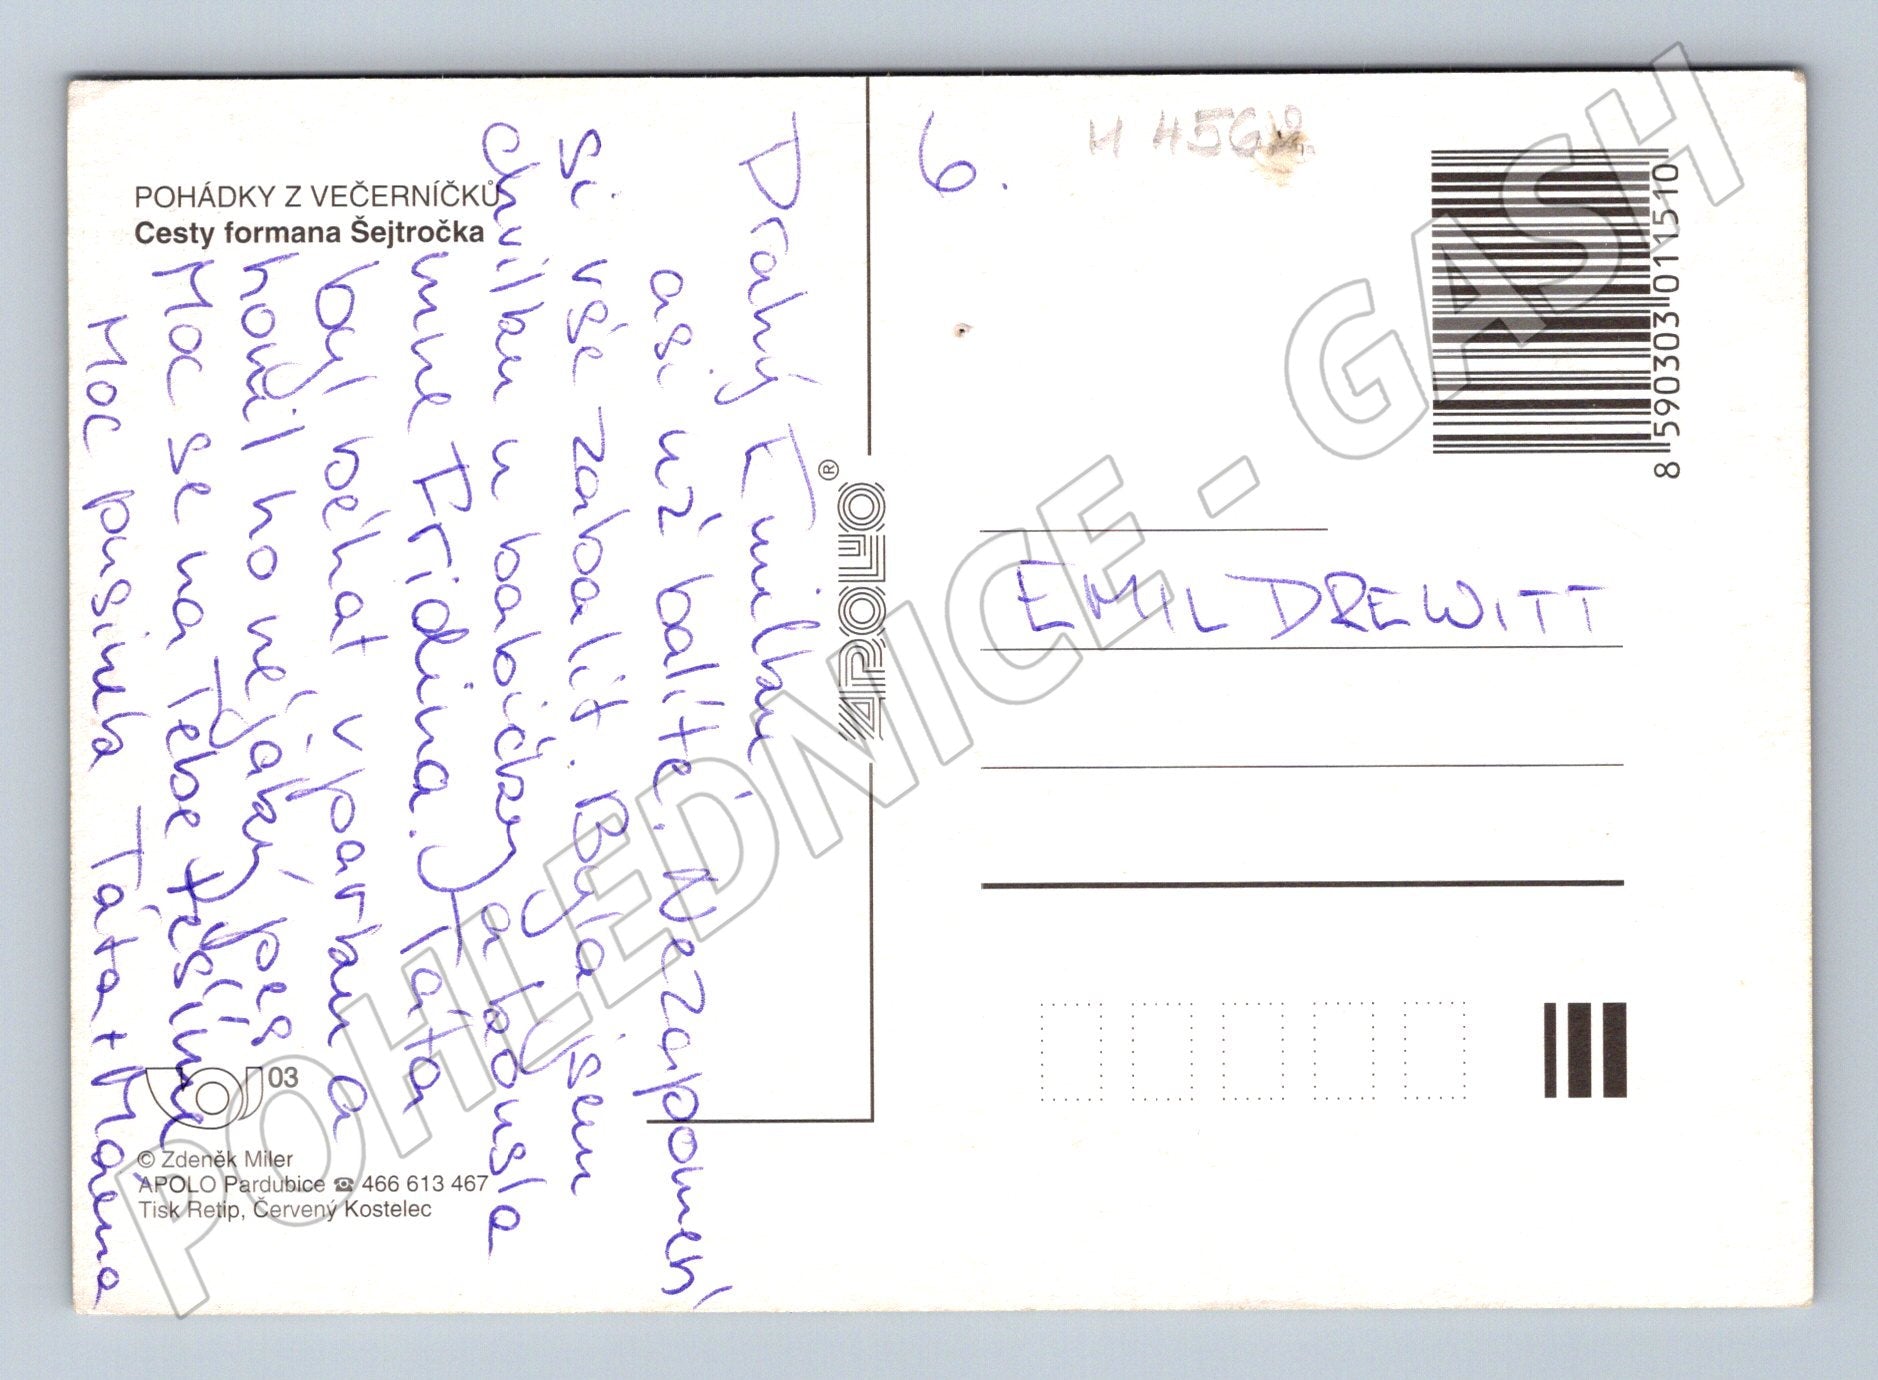 POHÁDKY Z VEČERNÍČKŮ
Cesty formana Šejtročka
Drahý Emilku
asi už balíte. Nezapomeň
si vše zabalit. Byla jsem
chvilku u babičky a kousla
mne Fridina. Táta
byl běhat v parku a
honil ho nějaký pes
Moc se na Tebe těšíme
Moc pusinek Táta + Máma
03
© Zdeněk Miler
APOLO Pardubice ☎ 466 613 467
Tisk Retip, Červený Kostelec
APOLLO®
6.
H 456
8 590303 011510
EMIL DREWITT
POHLEDNICE - GASH